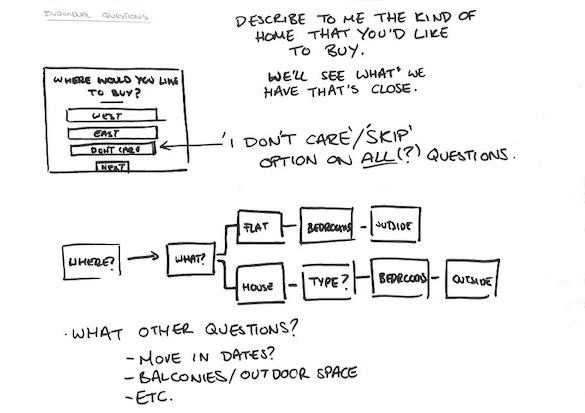 INDIVIDUAL QUESTIONS
DESCRIBE TO ME THE KIND OF
HOME THAT YOU'D LIKE
TO BUY.
WE'LL SEE WHAT WE
HAVE THAT'S CLOSE.
WHERE WOULD YOU LIKE
TO BUY?
WEST
EAST
DONT CARE
NEXT
'I DON'T CARE'/'SKIP'
OPTION ON ALL(?) QUESTIONS.
WHERE?
WHAT?
FLAT
BEDROOMS
OUTSIDE
HOUSE
TYPE?
BEDROOMS
OUTSIDE
· WHAT OTHER QUESTIONS?
- MOVE IN DATES?
- BALCONIES/OUTDOOR SPACE
- ETC.